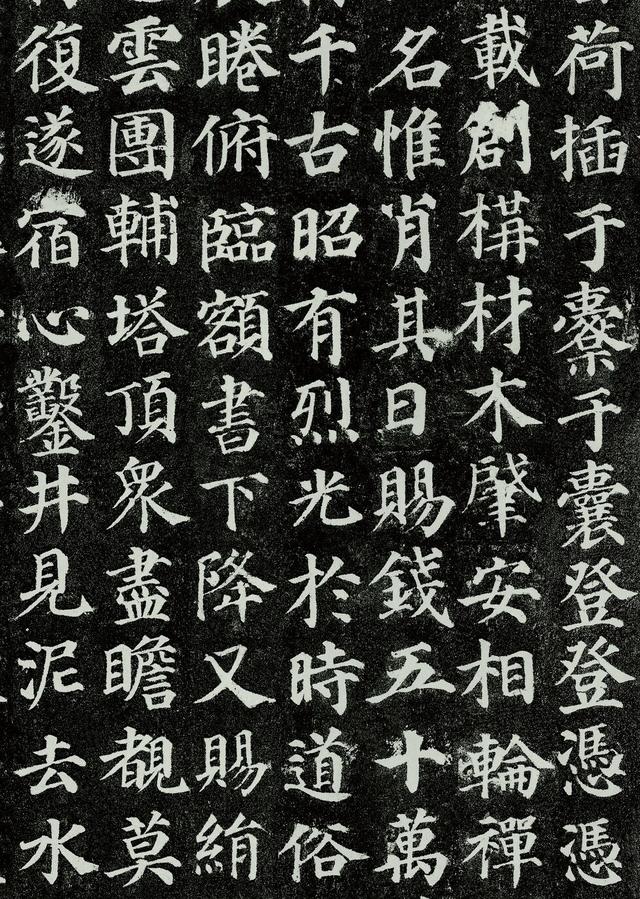 荷插于橐于囊登登憑憑
載創構材木肇安相輪禪
名惟肖其日賜錢五十萬
千古昭有烈光於時道俗
睠俯臨額書下降又賜絹
雲團輔塔頂眾盡瞻覩莫
復遂宿心鑿井見泥去水